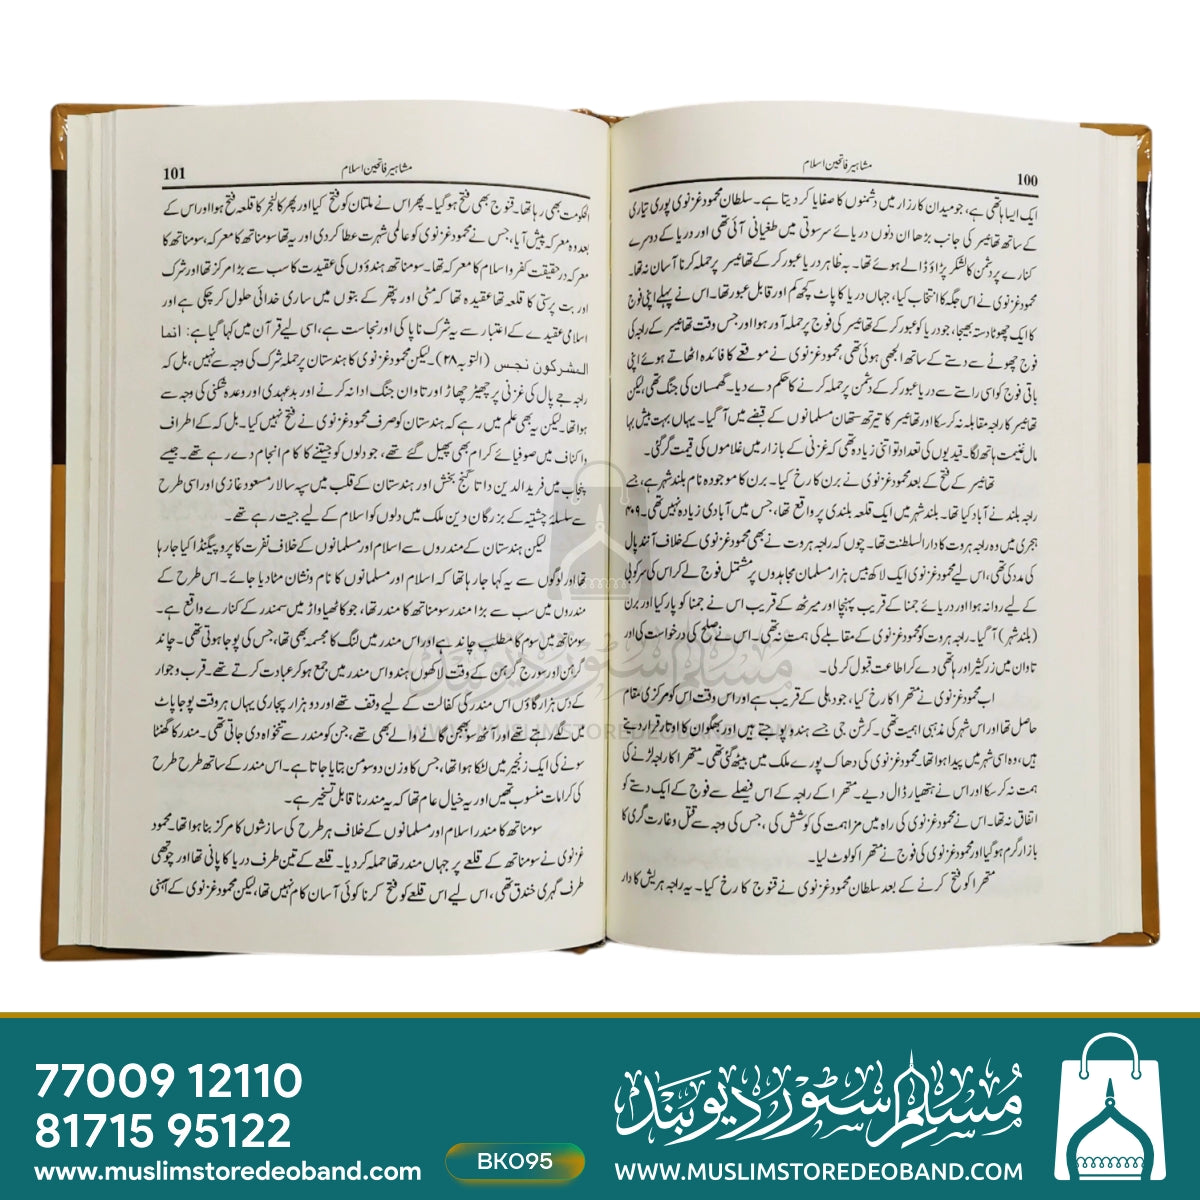 100
مشاہیر فاتحین اسلام
ایک ایسا ہاتھی ہے، جو میدان کارزار میں دشمنوں کا صفایا کر دیتا ہے۔ سلطان محمود غزنوی پوری تیاری
کے ساتھ تھانیسر کی جانب بڑھا ان دنوں دریائے سرسوتی میں طغیانی آئی تھی اور دریا کے دوسرے
کنارے پر دشمن کا لشکر پڑاؤ ڈالے ہوئے تھا۔ بہ ظاہر دریا عبور کر کے تھانیسر پر حملہ کرنا آسان نہ تھا۔
محمود غزنوی نے اس جگہ کا انتخاب کیا، جہاں دریا کا پاٹ کچھ کم اور قابل عبور تھا۔ اس نے پہلے اپنی فوج
کا ایک چھوٹا دستہ بھیجا، جو دریا کو عبور کر کے تھانیسر کی فوج پر حملہ آور ہوا اور جس وقت تھانیسر کے راجہ کی
فوج چھوٹے سے دستے کے ساتھ الجھی ہوئی تھی، محمود غزنوی نے موقعے کا فائدہ اٹھاتے ہوئے اپنی
باقی فوج کو اسی راستے سے دریا عبور کر کے دشمن پر حملہ کرنے کا حکم دے دیا۔ گھمسان کی جنگ تھی، لیکن
تھانیسر کا راجہ مقابلہ نہ کر سکا اور تھانیسر کا تیرتھ ستھان مسلمانوں کے قبضے میں آ گیا۔ یہاں بہت بیش بہا
مال غنیمت ہاتھ لگا۔ قیدیوں کی تعداد تو اتنی زیادہ تھی کہ غزنی کے بازار میں غلاموں کی قیمت گر گئی۔
تھانیسر کے فتح کے بعد محمود غزنوی نے برن کا رخ کیا۔ برن کا موجودہ نام بلند شہر ہے، جسے
راجہ بلند نے آباد کیا تھا۔ بلند شہر میں ایک قلعہ بلندی پر واقع تھا، جس میں آبادی زیادہ نہیں تھی۔ ۴۰۹
ہجری میں وہ راجہ ہروت کا دارالسلطنت تھا۔ چوں کہ راجہ ہروت نے بھی محمود غزنوی کے خلاف آنند پال
کی مدد کی تھی، اس لیے محمود غزنوی ایک لاکھ بیس ہزار مسلمان مجاہدوں پر مشتمل فوج لے کر اس کی سرکوبی
کے لیے روانہ ہوا اور دریائے جمنا کے قریب پہنچا اور میرٹھ کے قریب اس نے جمنا کو پار کیا اور برن
(بلند شہر) آ گیا۔ راجہ ہروت کو محمود غزنوی کے مقابلے کی ہمت نہ تھی۔ اس نے صلح کی درخواست کی اور
تاوان میں زر کثیر اور ہاتھی دے کر اطاعت قبول کر لی۔
اب محمود غزنوی نے متھرا کا رخ کیا، جو دہلی کے قریب ہے اور اس وقت اس کو مرکزی مقام
حاصل تھا اور اس شہر کی مذہبی اہمیت تھی۔ کرشن جی جسے ہندو پوجتے ہیں اور بھگوان کا اوتار قرار دیتے
ہیں، وہ اسی شہر میں پیدا ہوا تھا۔ محمود غزنوی کی دھاک پورے ملک میں بیٹھ گئی تھی۔ متھرا کا راجہ لڑنے کی
ہمت نہ کر سکا اور اس نے ہتھیار ڈال دیے۔ متھرا کے راجہ کے اس فیصلے سے فوج کے ایک دستے کو
اتفاق نہ تھا۔ اس نے محمود غزنوی کی راہ میں مزاحمت کی کوشش کی، جس کی وجہ سے قتل و غارت گری کا
بازار گرم ہو گیا اور محمود غزنوی کی فوج نے متھرا کو لوٹ لیا۔
متھرا کو فتح کرنے کے بعد سلطان محمود غزنوی نے قنوج کا رخ کیا۔ یہ راجہ ہریش کا دار
101
مشاہیر فاتحین اسلام
الحکومت بھی رہا تھا۔ قنوج بھی فتح ہو گیا۔ پھر اس نے ملتان کو فتح کیا اور پھر کالنجر کا قلعہ فتح ہوا اور اس کے
بعد وہ معرکہ پیش آیا، جس نے محمود غزنوی کو عالمی شہرت عطا کر دی اور یہ تھا سومناتھ کا معرکہ، سومناتھ کا
معرکہ در حقیقت کفر و اسلام کا معرکہ تھا۔ سومناتھ ہندوؤں کی عقیدت کا سب سے بڑا مرکز تھا اور شرک
اور بت پرستی کا قلعہ تھا عقیدہ تھا کہ مٹی اور پتھر کے بتوں میں ساری خدائی حلول کر چکی ہے اور
اسلامی عقیدے کے اعتبار سے یہ شرک ناپاکی اور نجاست ہے، اسی لیے قرآن میں کہا گیا ہے: انما
المشرکون نجس (التوبہ ۲۸)۔ لیکن محمود غزنوی کا ہندستان پر حملہ شرک کی وجہ سے نہیں، بل کہ
راجہ جے پال کی غزنی پر چھیڑ چھاڑ اور تاوان جنگ ادا نہ کرنے اور بد عہدی اور وعدہ شکنی کی وجہ سے
ہوا تھا۔ لیکن یہ بھی علم میں رہے کہ ہندستان کو صرف محمود غزنوی نے فتح نہیں کیا۔ بل کہ کے اطراف
واکناف میں صوفیائے کرام بھی پھیل گئے تھے، جو دلوں کو جیتنے کا کام انجام دے رہے تھے۔ جیسے
پنجاب میں فرید الدین داتا گنج بخش اور ہندستان کے قلب میں سپہ سالار مسعود غازی اور اسی طرح
سے سلسلۂ چشتیہ کے بزرگان دین ملک میں دلوں کو اسلام کے لیے جیت رہے تھے۔
لیکن ہندستان کے مندروں سے اسلام اور مسلمانوں کے خلاف نفرت کا پروپیگنڈا کیا جا رہا
تھا اور لوگوں سے یہ کہا جا رہا تھا کہ اسلام اور مسلمانوں کا نام و نشان مٹا دیا جائے۔ اس طرح کے
مندروں میں سب سے بڑا مندر سومناتھ کا مندر تھا، جو کاٹھیاواڑ میں سمندر کے کنارے واقع ہے۔
سومناتھ میں سوم کا مطلب چاند ہے اور اس مندر میں لنگ کا مجسمہ بھی تھا، جس کی پوجا ہوتی تھی۔ چاند
گرہن اور سورج گرہن کے وقت لاکھوں ہندو اس مندر میں جمع ہو کر عبادت کرتے تھے۔ قرب و جوار
کے دس ہزار گاؤں اس مندر کی کفالت کے لیے وقف تھے اور دو ہزار پجاری یہاں ہر وقت پوجا پاٹ
میں لگے رہتے تھے اور آٹھ سو بھجن گانے والے بھی تھے، جن کو مندر سے تنخواہ دی جاتی تھی۔ مندر کا گھنٹا
سونے کی ایک زنجیر میں لٹکا ہوا تھا، جس کا وزن دو سو من بتایا جاتا ہے۔ اس مندر کے ساتھ طرح طرح
کی کرامات منسوب تھیں اور یہ خیال عام تھا کہ یہ مندر ناقابل تسخیر ہے۔
سومناتھ کا مندر اسلام اور مسلمانوں کے خلاف ہر طرح کی سازشوں کا مرکز بنا ہوا تھا۔ محمود
غزنوی نے سومناتھ کے قلعے پر جہاں مندر تھا حملہ کر دیا۔ قلعے کے تین طرف دریا کا پانی تھا اور چوتھی
طرف گہری خندق تھی، اس لیے اس قلعے کو فتح کرنا کوئی آسان کام نہیں تھا، لیکن محمود غزنوی کے آہنی
مسلم سٹور دیوبند
WWW.MUSLIMSTOREDEOBAND.COM
77009 12110
81715 95122
www.muslimstoredeoband.com
BK095
مسلم سٹور دیوبند
WWW.MUSLIMSTOREDEOBAND.COM